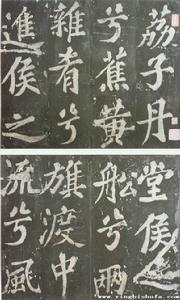 荔子丹
兮蕉黃
雜肴兮
進侯之
堂侯之
舩兮兩
旗渡中
流兮風
www.yingbishufa.com